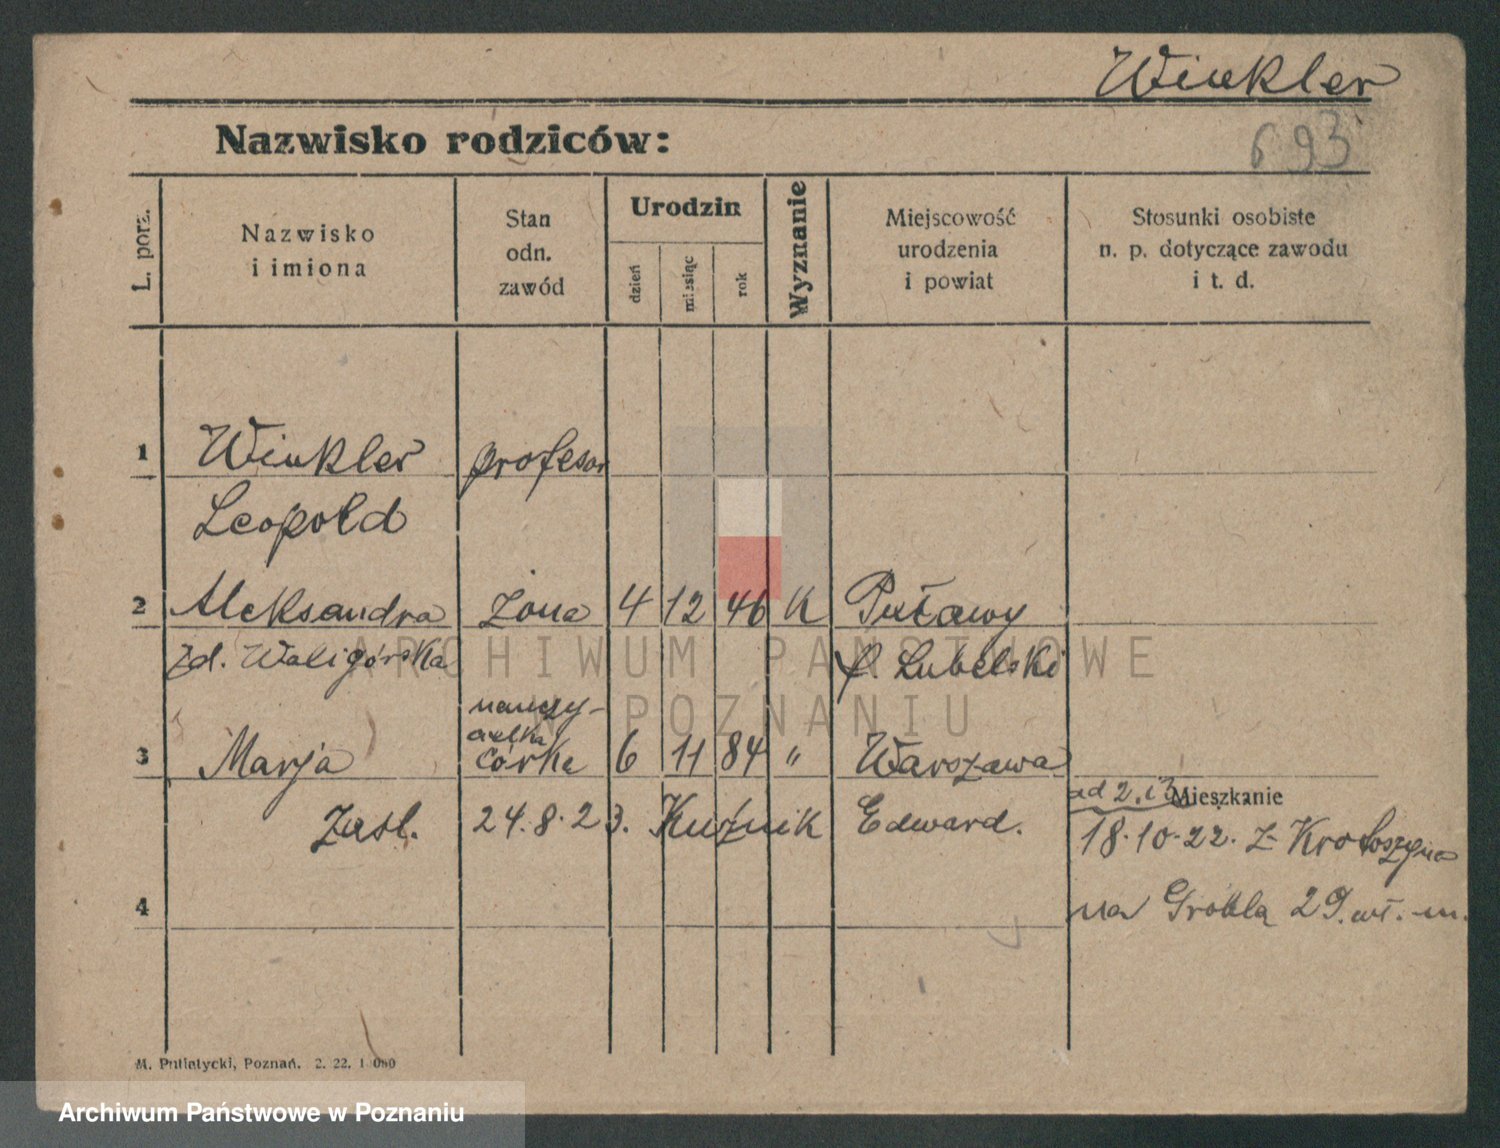 Winkler
Nazwisko rodziców:
693
L. porz.
Nazwisko
i imiona
Stan
odn.
zawód
Urodzin
dzień
miesiąc
rok
Wyznanie
Miejscowość
urodzenia
i powiat
Stosunki osobiste
n. p. dotyczące zawodu
i t. d.
1 Winkler profesor
Leopold
2 Aleksandra żona 4 12 46 K Puławy
zd. Waligórska p. Lubelski
nauczy-
cielka
3 Marja córka 6 11 84 " Warszawa
ad 2. i 3 Mieszkanie
Zaśl. 24.8.23. Kuźnik Edward.
18.10.22. z Krotoszyna
4
na Grobla 29. wł. m.
M. Putiatycki, Poznań. 2. 22. 1 000
ARCHIWUM PAŃSTWOWE
W POZNANIU
Archiwum Państwowe w Poznaniu